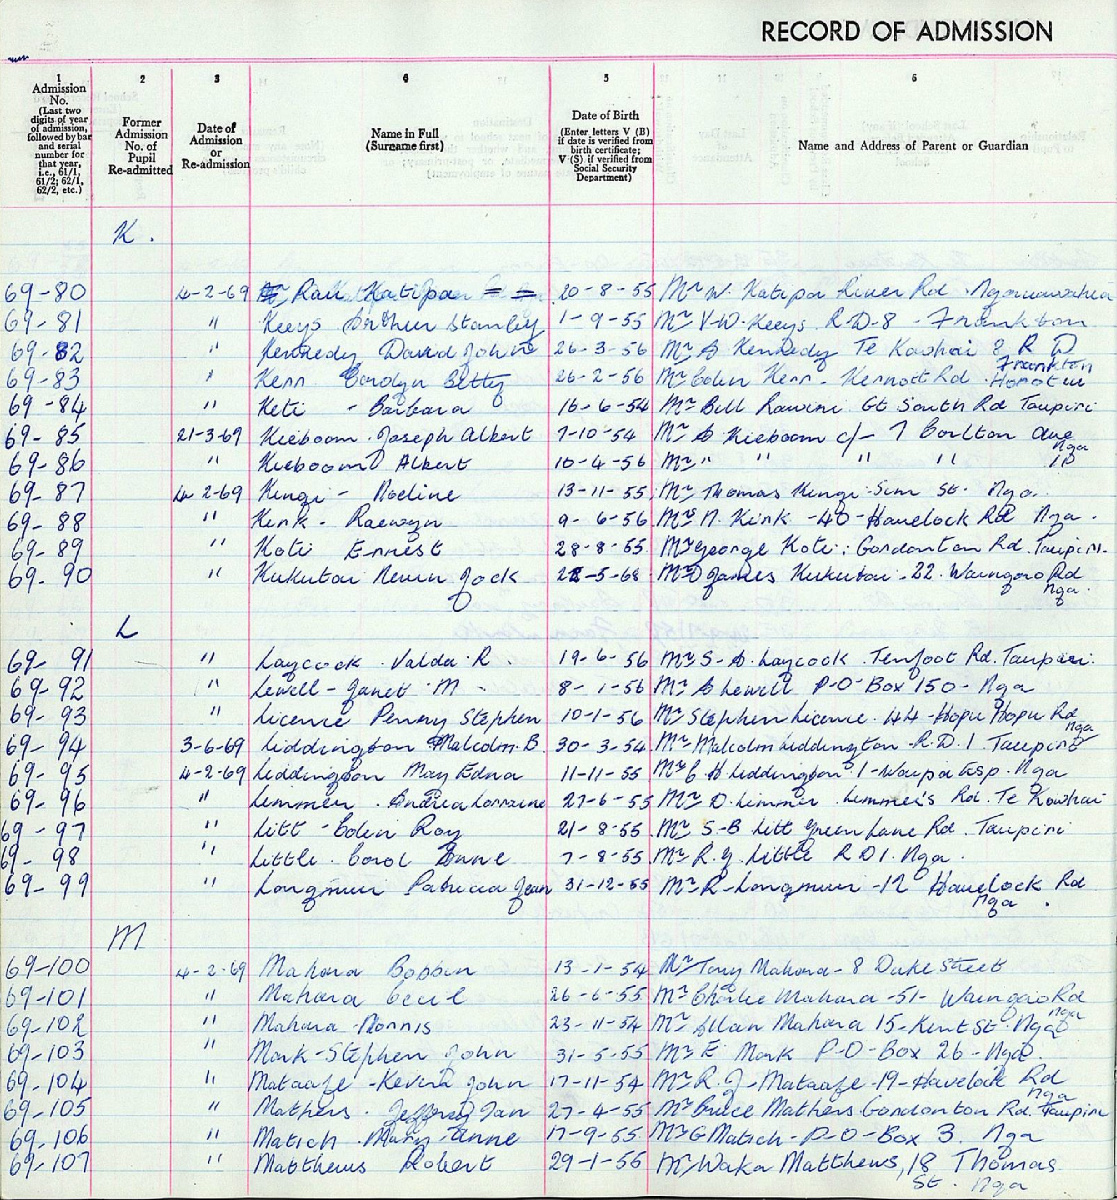 RECORD OF ADMISSION
1 2 3 4 5 6
Admission No. (Last two digits of year of admission, followed by bar and serial number for that year, i.e., 61/1, 61/2; 62/1, 62/2, etc.)
Former Admission No. of Pupil Re-admitted
Date of Admission or Re-admission
Name in Full (Surname first)
Date of Birth (Enter letters V (B) if date is verified from birth certificate; V (S) if verified from Social Security Department)
Name and Address of Parent or Guardian
K.
69-80 4-2-69 Rau Katipa 20-8-55 Mr W. Katipa River Rd. Ngaruawahia
69-81 " Keeys Arthur Stanley 1-9-55 Mr V-W-Keeys R-D-8 - Frankton
69-82 " Kennedy David John 26-3-56 Mr A Kennedy Te Kowhai 8 R D Frankton
69-83 " Kerr Carolyn Betty 26-2-56 Mr Colin Kerr - Kernott Rd. Horotiu
69-84 " Keti - Barbara 16-6-54 Mr Bill Rawiri Gt South Rd Taupiri
69-85 21-3-69 Kieboom Joseph Albert 7-10-54 Mr A Kieboom c/- 7 Carlton Ave Nga
69-86 " Kieboom Albert 10-4-56 Mr " " " "
69-87 4-2-69 Kingi - Noeline 13-11-55 Mr Thomas Kingi Sim St. Nga.
69-88 " Kirk - Raewyn 9-6-56 N. Kirk -40-Havelock Rd Nga.
69-89 " Koti Ernest 28-8-55 Mr George Koti: Gordonton Rd. Taupiri.
69-90 " Kukutai Nevin Jock -5-68 James Kukutai -22. Waingaro Rd Nga.
L
69-91 " Laycock Valda R. 19-6-56 Mr S-A. Laycock Tenfoot Rd. Taupiri.
69-92 " Lewell - Janet M - 8-1-56 Mr A Lewell P-O-Box 150 - Nga
69-93 " Licence Penny Stephen 10-1-56 Mr Stephen Licence. 44-Hopu Hopu Rd Nga
69-94 3-6-69 Liddington Malcolm. B 30-3-54 Mr Malcolm Liddington - R.D.1. Taupiri
69-95 4-2-69 Liddington May Edna 11-11-55 Mr C H Liddington 1-Waipa Esp. Nga
69-96 " Limmer. Andrea Lorraine 27-6-55 Mr D. Limmer. Limmer's Rd. Te Kowhai
69-97 " Litt - Colin Roy 21-8-55 Mr S-B Litt Green Lane Rd. Taupiri
69-98 " Little. Carol Anne 7-8-55 Mr R. J. Little R D 1. Nga.
69-99 " Longmuir Patricia Jean 31-12-55 Mr R-Longmuir -12 Havelock Rd Nga.
M
69-100 4-2-69 Mahara Bobbin 13-1-54 Mr Tony Mahara - 8 Duke Street
69-101 " Mahara Cecil 26-6-55 Mr Charlie Mahara -51- Waingaro Rd Nga
69-102 " Mahara Norris 23-11-54 Mr Allan Mahara 15-Kent St. Nga
69-103 " Mark-Stephen John 31-5-55 Mr E Mark P-O-Box 26-Nga.
69-104 " Mataafe - Kevin John 17-11-54 Mr R. J- Mataafe -19-Havelock Rd Nga
69-105 " Mathers. Jeffery Ian 27-4-55 Mr Bruce Mathers Gordonton Rd. Taupiri
69-106 " Matich. Mary Anne 17-9-55 G Matich - P-O-Box 3. Nga
69-107 " Matthews Robert 29-1-56 Mr Waka Matthews, 18 Thomas St. Nga